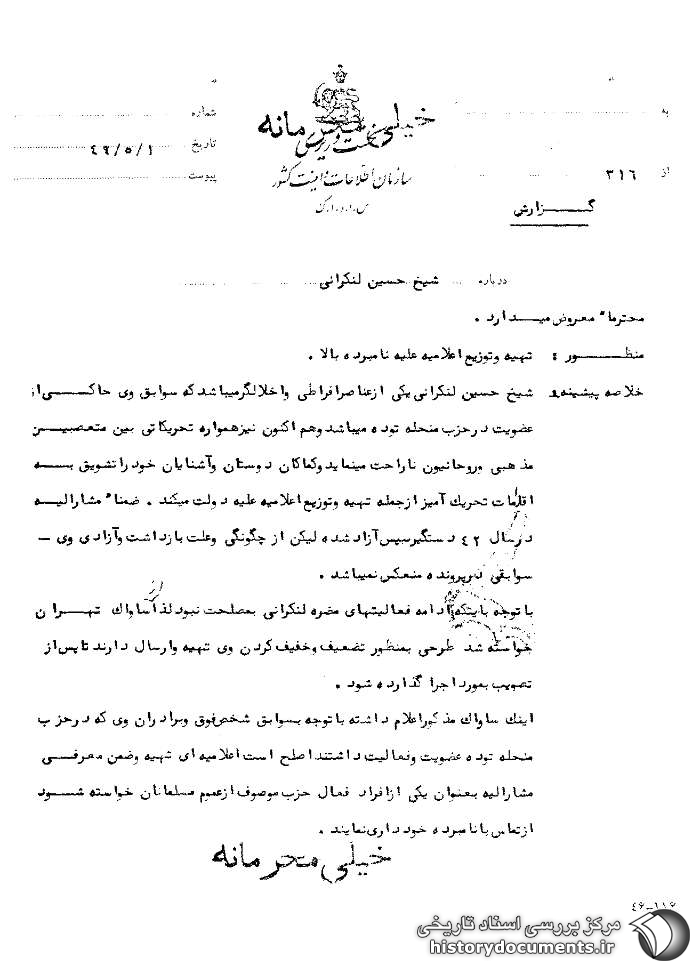 به
شماره
خیلی محرمانه
نخست وزیری
تاریخ ۴۶/۵/۱
از ۳۱۶
سازمان اطلاعات و امنیت کشور
پیوست
س.ا.و.ا.ک
گزارش
درباره شیخ حسین لنکرانی
محترما" معروض میدارد .
منظور : تهیه وتوزیع اعلامیه علیه نامبرده بالا .
خلاصه پیشینه : شیخ حسین لنکرانی یکی ازعناصرافراطی واخلالگرمیباشد که سوابق وی حاکی از
عضویت درحزب منحله توده میباشد وهم اکنون نیزهمواره تحریکاتی بین متعصبین
مذهبی وروحانیون ناراحت مینماید وکماکان دوستان وآشنایان خود را تشویق به
اقدامات تحریک آمیز ازجمله تهیه وتوزیع اعلامیه علیه دولت میکند . ضمنا" مشارالیه
درسال ۴۲ دستگیرسپس آزاد شده لیکن از چگونگی وعلت بازداشت وآزادی وی -
سوابقی درپرونده منعکس نمیباشد .
با توجه باینکه ادامه فعالیتهای مضره لنکرانی بمصلحت نبود لذا ازساواک تهران
خواسته شد طرحی بمنظور تضعیف وخفیف کردن وی تهیه وارسال دارند تا پس از
تصویب بمورد اجرا گذارده شود .
اینک ساواک مذکور اعلام داشته با توجه بسوابق شخص فوق وبرادران وی که درحزب
منحله توده عضویت وفعالیت داشتند اصلح است اعلامیه ای تهیه وضمن معرفی
مشارالیه بعنوان یکی ازافراد فعال حزب موصوف ازعموم مسلمانان خواسته شود
ازتماس با نامبرده خودداری نمایند .
خیلی محرمانه
۴۶-۱۱۶
مرکز بررسی اسناد تاریخی
historydocuments.ir